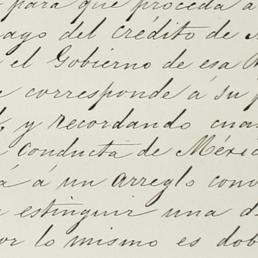 para que proceda a
ago del crédito de
el Gobierno de esa
corresponde á su
y recordando cuan
conducta de Mexic
á á un arreglo conv
estinguir una d
or lo mismo es dob